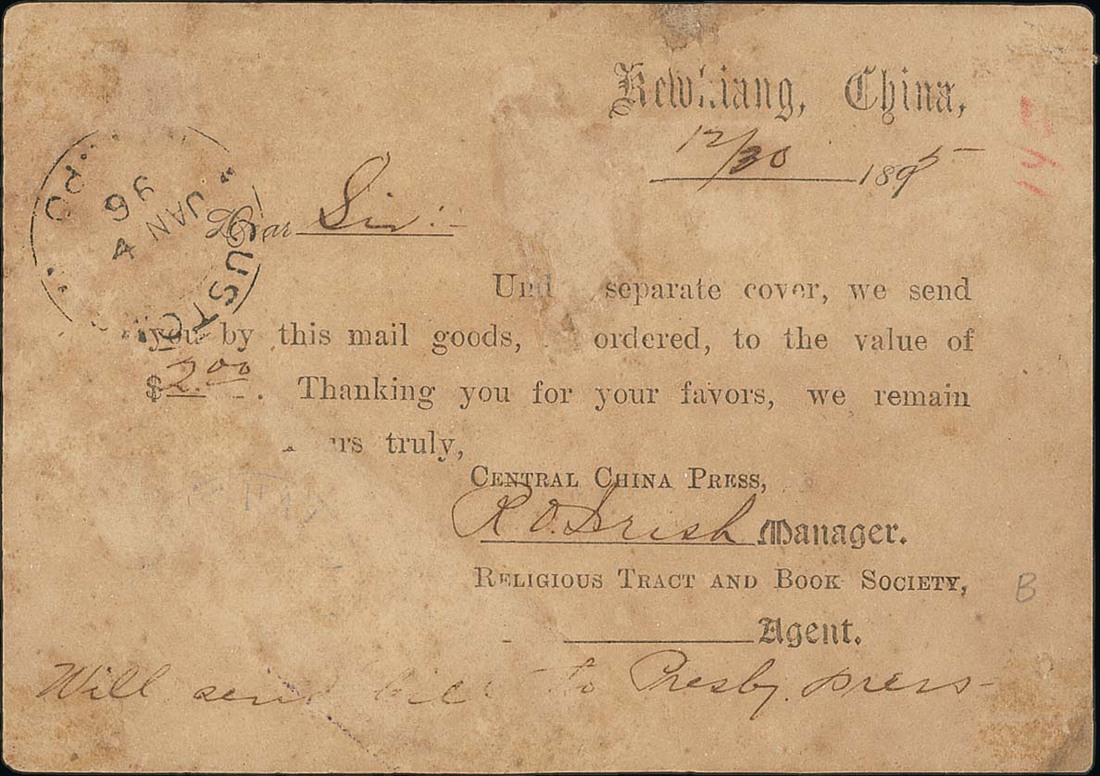 Kewkiang, China,
12/30 1895
Dear Sir:
Und separate cover, we send
you by this mail goods, ordered, to the value of
$2.00. Thanking you for your favors, we remain
urs truly,
CENTRAL CHINA PRESS,
R O. Irish Manager.
RELIGIOUS TRACT AND BOOK SOCIETY,
Agent.
Will send bill to Presby. press
JAN 4
96
B